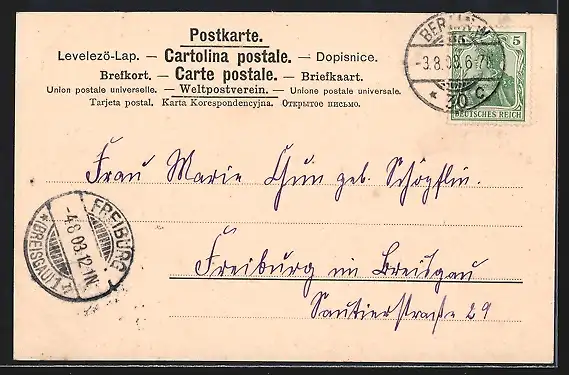 Postkarte.
Levelező-Lap. — Cartolina postale. — Dopisnice.
Brefkort. — Carte postale. — Briefkaart.
Union postale universelle. — Weltpostverein. — Unione postale universale.
Tarjeta postal. Karta Korespondencyjna. Открытое письмо.
BERLIN W
-3.8.03. 6-7N.
* 30 c
5
DEUTSCHES REICH
Frau Marie Chun geb. Schöpflin.
FREIBURG
-4.8.03.12-1N.
*(BREISGAU)
Freiburg im Breisgau
Sautierstraße 29